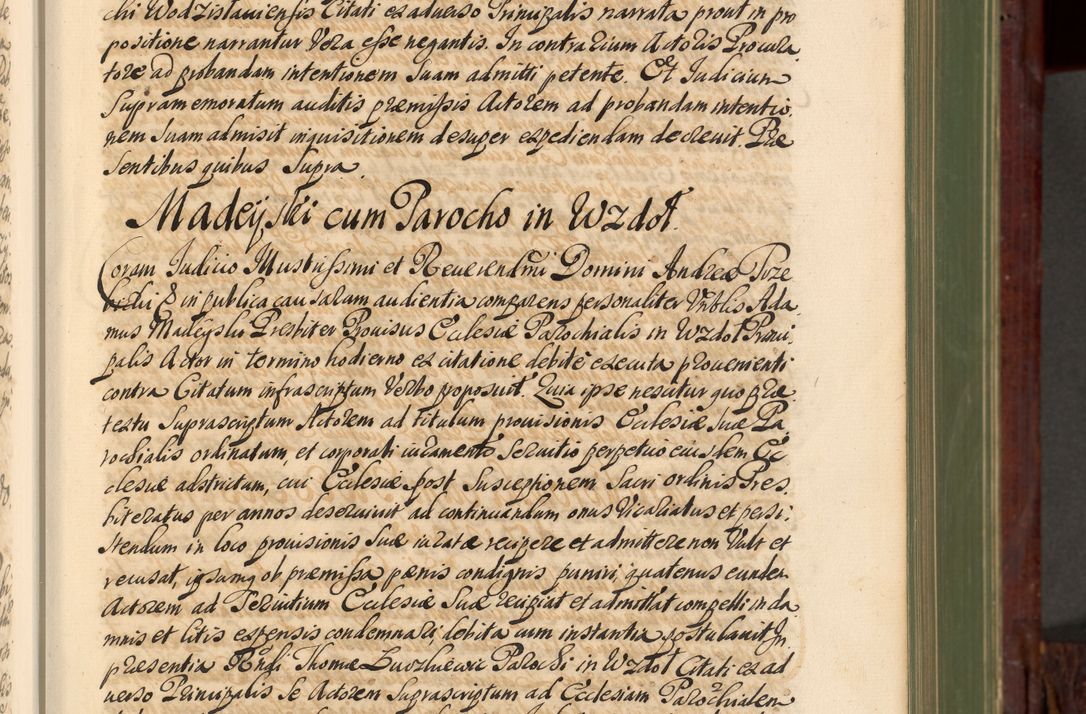 chi Wodzislauiensis Citati ex aduerso Principalis narrata prout in pro
positione narrantur Vera esse negantis. In contrarium Actoris Procura
tore ad probandam intentionem suam admitti petente. Et Iudicium
Supramemoratum auditis præmissis Actorem ad probandam intentio
nem suam admisit inquisitionem desuper expediendam decreuit. Præ
sentibus quibus supra.
Madeyski cum Parocho in Wzdoł.
Coram Iudicio Illustrissimi et Reuerendmi Domini Andreæ Trze
bicki E in publica causarum audientia comparens personaliter Vrblis Ada
mus Madeyski Presbiter Prouisus Ecclesiæ Parochialis in Wzdoł Princi
palis Actor in termino hodierno ex citatione debite executa proueniente
contra Citatum infrascriptum Verbo proposuit. Quia ipse nescitur quo præ
textu suprascriptum Actorem ad titulum prouisionis Ecclesiæ suæ Pa
rochialis ordinatum, et corporali iuramento seruitio perpetuo eiusdem Ec
clesiæ adstrictum, cui Ecclesiæ post susceptionem Sacri ordinis Pres
biteratus per annos deseruiuit ad continuandum onus Vicariatus et persi
stendum in loco prouisionis suæ iuratæ recipere et admittere non Vult et
recusat, ipsumq ob præmissa pænis condignis puniri, quatenus eunden
Actorem ad Seruitium Ecclesiæ suæ recipiat et admittat compelli in da
mnis et litis expensis condemnari, debita cum instantia postulauit. In
præsentia Rndi Thomæ Parochi in Wzdoł Citati ex ad
uerso Principalis se Actorem suprascriptum ad Ecclesiam Parochialem